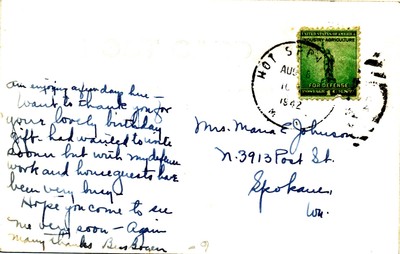 am enjoying a few days here —
Want to thank you for
your lovely birthday
gift. had wanted to write
sooner but with my defense
work and houseguests have
been very busy.
Hope you come to see
me very soon — Again
many thanks
HOT SPRIN
AUG
10
1942
UNITED STATES OF AMERICA
INDUSTRY AGRICULTURE
FOR DEFENSE
Mrs. Maria E. Johnson
N. 3913 Post St.
Spokane,
Wn.